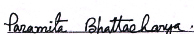 Paramita Bhattacharya.